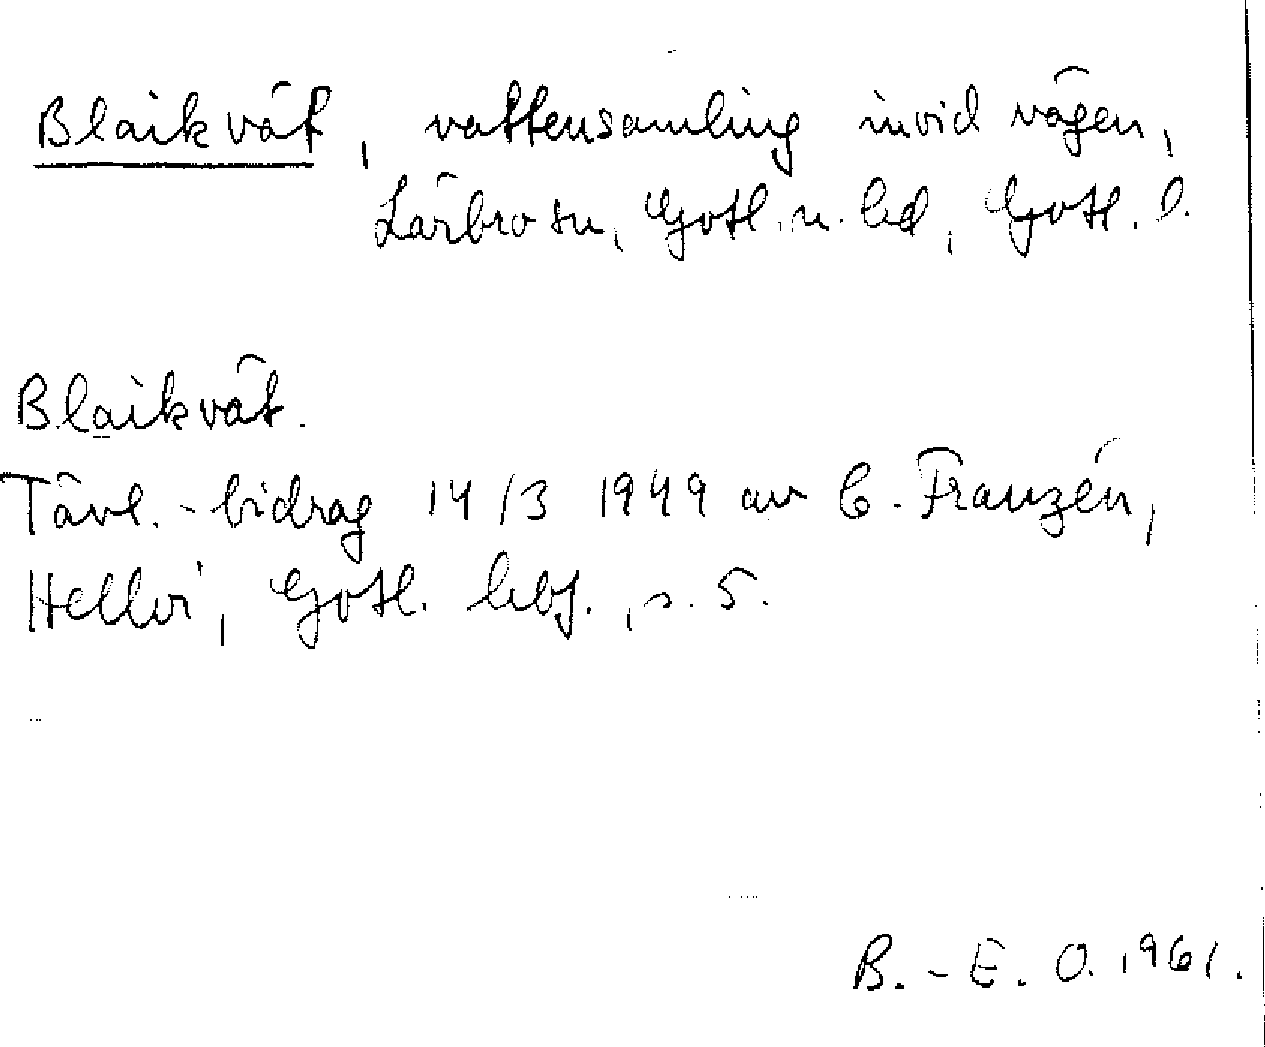 Blaikvät, vattensamling invid vägen,
Lärbro sn, Gotl. n. hd, Gotl. l.
Blaikvät.
Tävl.-bidrag 14/3 1949 av C. Franzén,
Hellvi, Gotl. , s. 5.
B.-E. O. 1961.